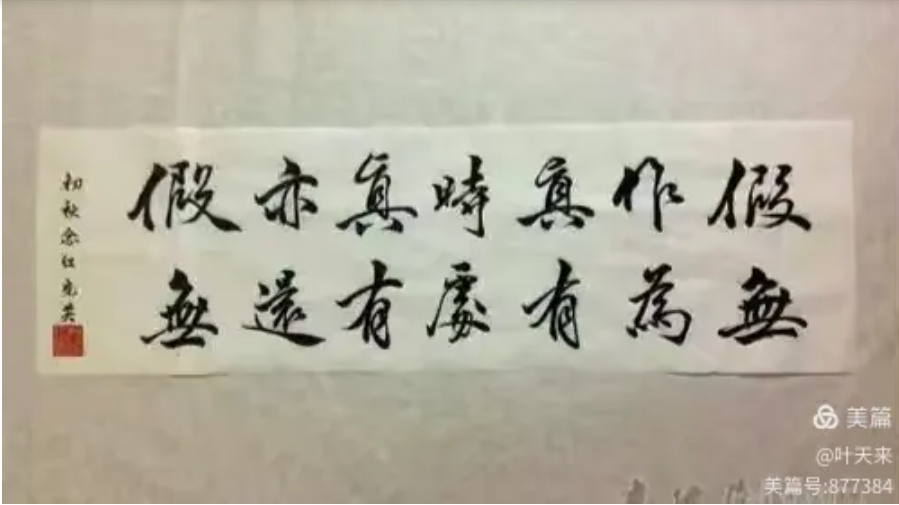 假作真時真亦假
無為有處有還無
初秋念红
美篇
@叶天来
美篇号:877384